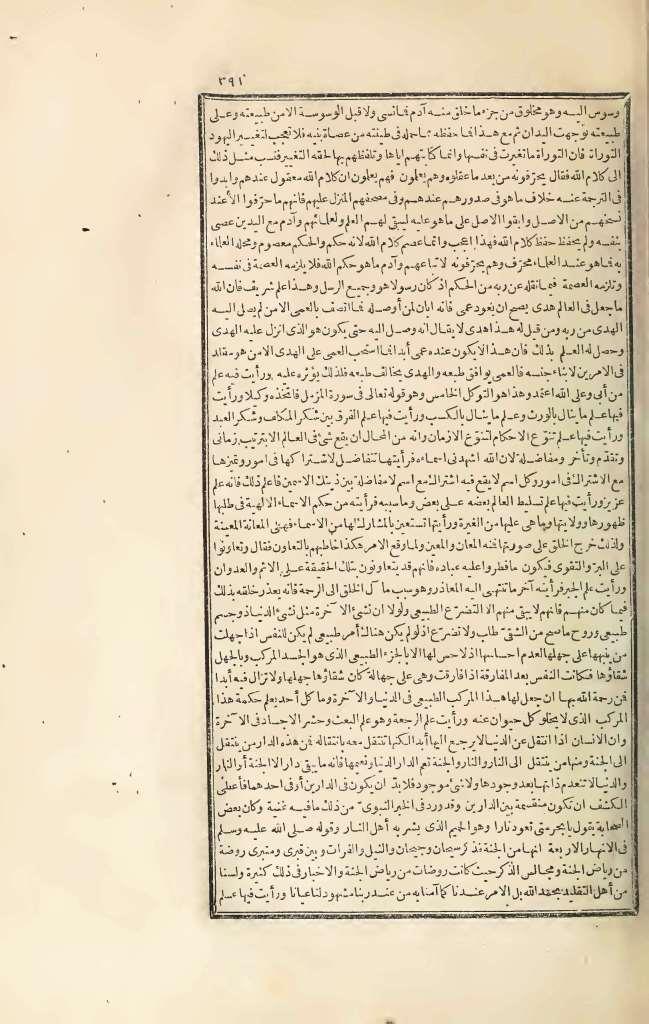 ٣٩١
وسوس اليه وهو مخلوق من جزء ما خلق منه آدم فما نسى ولا قبل الوسوسة الا من طبيعته وعلى
طبيعته توجهت اليدان ثم مع هذا فما حفظه مما حمله فى طينته من عصاة بنيه فلا تعجب لتغيير اليهود
التوراة فان التوراة ما تغيرت فى نفسها وانما كتابتهم اياها وتلفظهم بها لحقه التغيير فنسب مثل ذلك
الى كلام الله فقال يحرّفونه من بعد ما عقلوه وهم يعلمون فهم يعلمون ان كلام الله معقول عندهم وابدوا
فى الترجمة عنه خلاف ما هو فى صدورهم عندهم وفى مصحفهم المنزل عليهم فانهم ما حرّفوا الا عند
نسخهم من الاصل وابقوا الاصل على ما هو عليه ليبقى لهم العلم ولعلمائهم وآدم مع اليدين عصى
بنفسه ولم يحفظ حفظ كلام الله فهذا اعجب وانما عصم كلام الله لانه حكم والحكم معصوم ومحله العلماء
به فما هو عند العلماء محرّف وهم يحرّفونه لاتباعهم وآدم ما هو حكم الله فلا يلزمه العصمة فى نفسه
وتلزمه العصمة فيما نقله عن ربه من الحكم اذ كان رسولا هو وجميع الرسل وهذا علم شريف فان الله
ما جعل فى العالم هدى يصح ان يعود عمى فانه ابان لمن أوصله فما اتصف بالعمى الا من لم يصل اليه
الهدى من ربه ومن قيل له هذا هدى لا يقال انه وصل اليه حتى يكون هو الذى انزل عليه الهدى
وحصل له العلم بذلك فان هذا لا يكون عنده عمى أبدا فما استحب العمى على الهدى الا من هو مقلد
فى الامرين لابناء جنسه فالعمى يوافق طبعه والهدى يخالف طبعه فلذلك يؤثره عليه ورأيت فيه علم
من أبى وعلى الله اعتمد وهذا هو التوكل الخامس وهو قوله تعالى فى سورة المزمل فاتخذه وكيلا ورأيت
فيها علم ما ينال بالورث وعلم ما ينال بالكسب ورأيت فيها علم الفرق بين شكر المكلف وشكر العبد
ورأيت فيها علم تنوّع الاحكام لتنوّع الازمان وانه من المحال ان يقع شئ فى العالم الا بترتيب زمانى
وتقدّم وتأخر ومفاضلة لان الله اشهدنى اسماءه فرأيتها تتفاضل لاشتراكها فى امور وتميزها
مع الاشتراك فى امور وكل اسم لا يقع فيه اشتراك مع اسم لا مفاضلة بين ذينك الاسمين فاعلم ذلك فانه علم
عزيز ورأيت فيها علم تسليط العالم بعضه على بعض وما سببه فرأيته من حكم الاسماء الالهية فى طلبها
ظهورها وولايتها وما هى عليها من الغيرة ورأيتها تستعين بالمشارك لها من الاسماء فهى المعانة المعينة
ولذلك خرج الخلق على صورتها فمنه المعان والمعين ولما وقع الامر هكذا خاطبهم بالتعاون فقال وتعاونوا
على البرّ والتقوى فيكون ما فطروا عليه عبادة فانهم قد يتعاونون بتلك الحقيقة على الاثم والعدوان
ورأيت علم الجبر فرأيته آخر ما تنتهى اليه المعاذر وهو سبب مآل الخلق الى الرحمة فانه يعذر خلقه بذلك
فيما كان منهم فانهم لا يبقى منهم الا التضرّع الطبيعى ولولا ان نشئ الآخرة مثل نشئ الدنيا ذو جسم
طبيعى وروح ما صح من الشقىّ طلب ولا تضرّع اذ لو لم يكن هناك أمر طبيعى لم يكن للنفس اذا جهلت
من ينبهها على جهلها لعدم احساسها اذ لا حس لها الا بالجزء الطبيعى الذى هو الجسد المركب وبالجهل
شقاؤها فكانت النفس بعد المفارقة اذا فارقت وهى على جهالة كان شقاؤها جهلها ولا تزال فيه أبدا
فمن رحمة الله بها ان جعل لها هذا المركب الطبيعى فى الدنيا والآخرة وما كل أحد يعلم حكمة هذا
المركب الذى لا يخلو كل حيوان عنه ورأيت علم الرجعة وهو علم البعث وحشر الاجساد فى الآخرة
وان الانسان اذا انتقل عن الدنيا لا يرجع اليها أبدا لكنها تنتقل معه بانتقاله فمن هذه الدار من ينتقل
الى الجنة ومنها من ينتقل الى النار والنار والجنة تعم الدار الدنيا ونعيمها فانه ما يبقى دار الا الجنة أو النار
والدنيا لا تنعدم ذاتها بعد وجودها ولا شئ موجود فلا بدّ ان يكون فى الدارين أو فى احدهما فأعطى
الكشف ان تكون منقسمة بين الدارين وقد ورد فى الخبر النبوىّ من ذلك ما فيه غنية وكان بعض
الصحابة يقول يا بحر متى تعود نارا وهو الحميم الذى يشربه أهل النار وقوله صلى الله عليه وسلم
فى الانهار الاربعة انها من الجنة فذكر سيحان وجيحان والنيل والفرات وبين قبرى ومنبرى روضة
من رياض الجنة ومجالس الذكر حيث كانت روضات من رياض الجنة والاخبار فى ذلك كثيرة ولسنا
من أهل التقليد بحمد الله بل الامر عندنا كما آمنا به من عند ربنا مشهود لنا عيانا ورأيت فيها علم